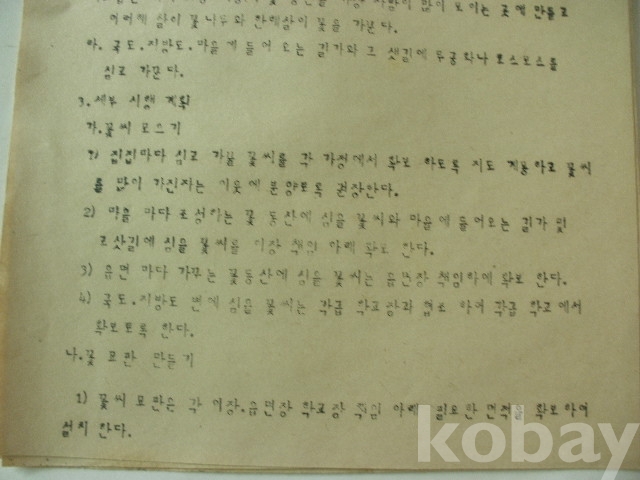 사람이 많이 모이는 곳에 만들고
여러해 살이 꽃나무와 한해살이 꽃을 가꾼다.
아. 국도.지방도.마을에 들어 오는 길가와 그 샛길에 무궁화나 코스모스를
심고 가꾼다.
3.세부 시행 계획
가.꽃씨 모으기
1) 집집마다 심고 가꿀 꽃씨를 각 가정에서 확보 하도록 지도 계몽하고 꽃씨
를 많이 가진자는 이웃에 분양토록 권장한다.
2) 마을 마다 조성하는 꽃 동산에 심을 꽃씨와 마을에 들어오는 길가 및
고샅길에 심을 꽃씨를 이장 책임 아래 확보 한다.
3) 읍면 마다 가꾸는 꽃동산에 심을 꽃씨는 읍면장 책임하에 확보 한다.
4) 국도.지방도 변에 심을 꽃씨는 각급 학교장과 협조 하여 각급 학교에서
확보토록 한다.
나.꽃 모판 만들기
1) 꽃씨 모판은 각 이장.읍면장 학교장 책임 아래 필요한 면적을 확보하여
설치 한다.
kobay